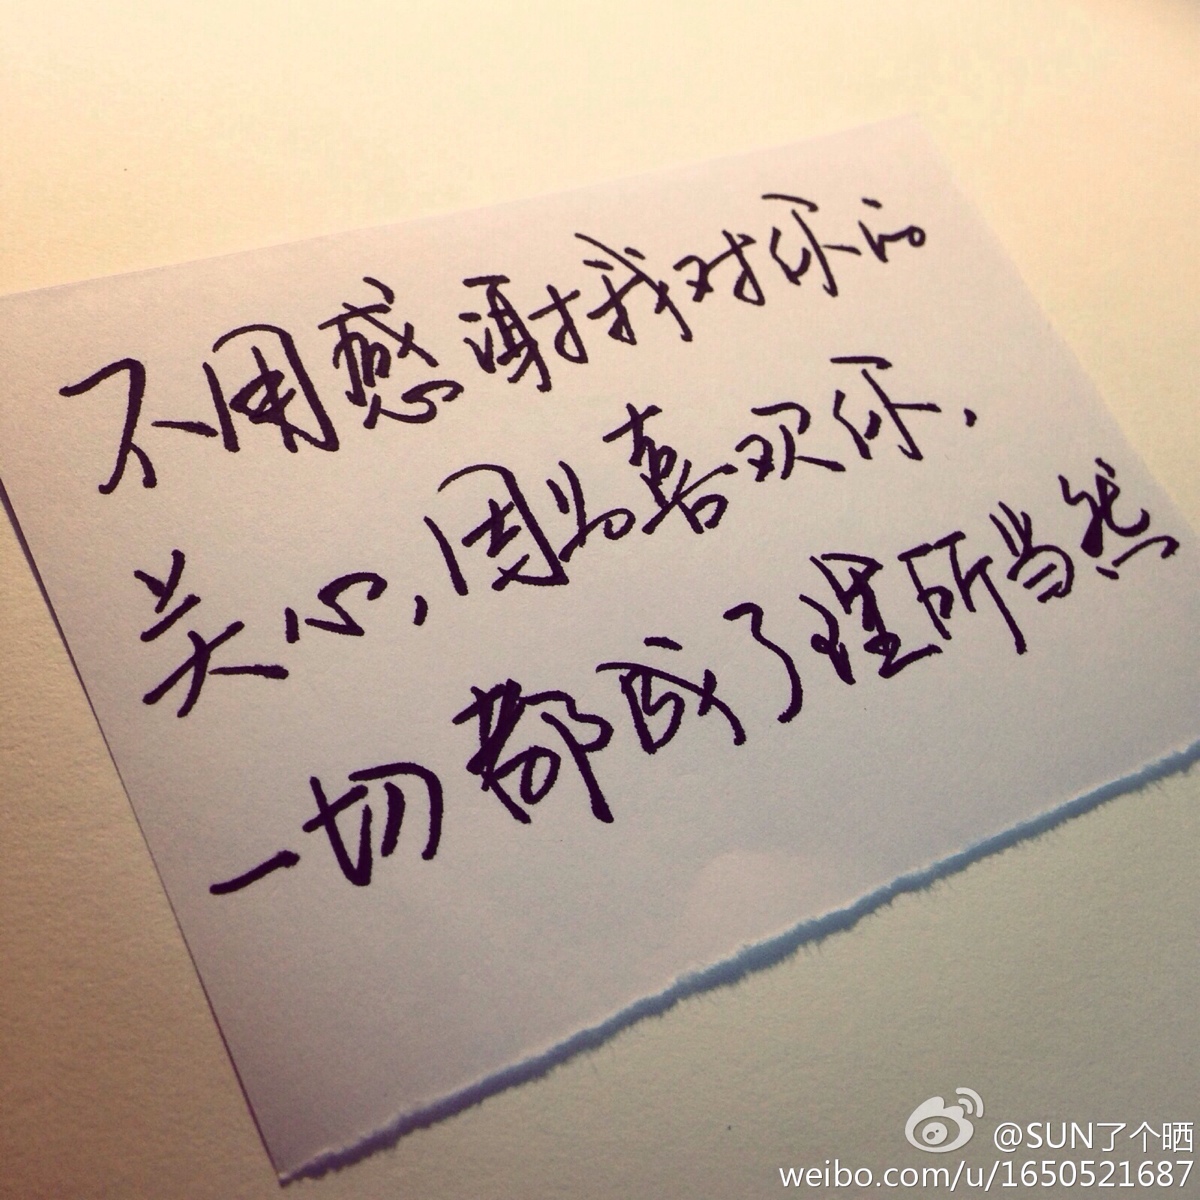 不用感谢我对你的
关心,因为喜欢你,
一切都成了理所当然
@SUN了个晒
weibo.com/u/1650521687